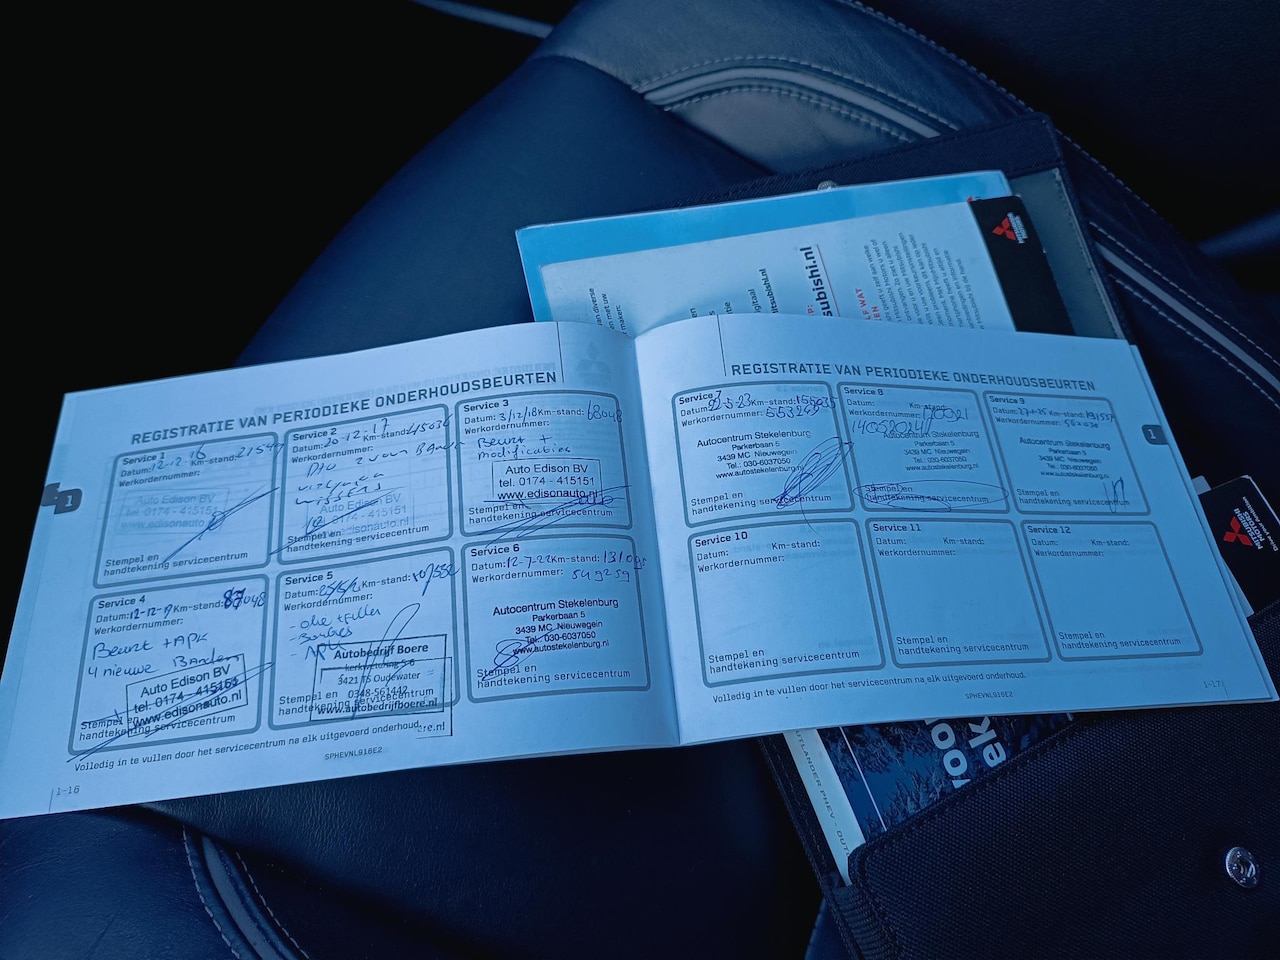 REGISTRATIE VAN PERIODIEKE ONDERHOUDSBEURTEN
1
Service 1
Datum: 12-12-16 Km-stand: 21547
Werkordernummer:
Auto Edison BV
tel. 0174 - 415151
www.edisonauto.nl
Stempel en
handtekening servicecentrum
Service 2
Datum: 20-12-17 Km-stand: 45636
Werkordernummer:
2 voor Banden
wissers
Auto Edison BV
tel. 0174 - 415151
www.edisonauto.nl
Stempel en
handtekening servicecentrum
Service 3
Datum: 3/12/18 Km-stand: 68048
Werkordernummer:
Beurt +
modificaties
Auto Edison BV
tel. 0174 - 415151
www.edisonauto.nl
Stempel en
handtekening servicecentrum
Service 4
Datum: 12-12-19 Km-stand: 87048
Werkordernummer:
Beurt + APK
4 nieuwe Banden
Auto Edison BV
tel. 0174 - 415151
www.edisonauto.nl
Stempel en
handtekening servicecentrum
Service 5
Datum: Km-stand:
Werkordernummer:
- olie + filter
- APK
Autobedrijf Boere
kerkwetering 5-6
3421 TS Oudewater
0348-561442
www.autobedrijfboere.nl
Stempel en
handtekening servicecentrum
Service 6
Datum: 12-7-22 Km-stand:
Werkordernummer: 549259
Autocentrum Stekelenburg
Parkerbaan 5
3439 MC Nieuwegein
Tel.: 030-6037050
www.autostekelenburg.nl
Stempel en
handtekening servicecentrum
Volledig in te vullen door het servicecentrum na elk uitgevoerd onderhoud.
SPHEVNL916E2
1-16
REGISTRATIE VAN PERIODIEKE ONDERHOUDSBEURTEN
1
Service 7
Datum: Km-stand: 155035
Werkordernummer: 553249
Autocentrum Stekelenburg
Parkerbaan 5
3439 MC Nieuwegein
Tel.: 030-6037050
www.autostekelenburg.nl
Stempel en
handtekening servicecentrum
Service 8
Datum: Km-stand:
Werkordernummer:
14052024
Autocentrum Stekelenburg
Parkerbaan 5
3439 MC Nieuwegein
Tel.: 030-6037050
www.autostekelenburg.nl
Stempel en
handtekening servicecentrum
Service 9
Datum: Km-stand:
Werkordernummer:
Autocentrum Stekelenburg
Parkerbaan 5
3439 MC Nieuwegein
Tel.: 030-6037050
www.autostekelenburg.nl
Stempel en
handtekening servicecentrum
Service 10
Datum: Km-stand:
Werkordernummer:
Stempel en
handtekening servicecentrum
Service 11
Datum: Km-stand:
Werkordernummer:
Stempel en
handtekening servicecentrum
Service 12
Datum: Km-stand:
Werkordernummer:
Stempel en
handtekening servicecentrum
Volledig in te vullen door het servicecentrum na elk uitgevoerd onderhoud.
SPHEVNL916E2
1-17
MITSUBISHI
MOTORS
OUTLANDER PHEV